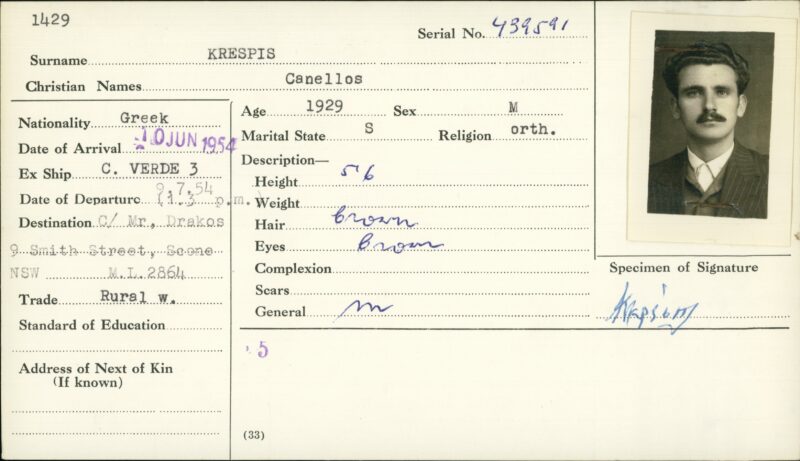 1429
Serial No. 439591
Surname KRESPIS
Christian Names Canellos
Nationality Greek
Date of Arrival 10 JUN 1954
Ex Ship C. VERDE 3
Date of Departure 9.7.54
11.3 p.m.
Destination C/ Mr, Drakos
9 Smith Street, Scone
NSW M.L. 2864
Trade Rural w.
Standard of Education
Address of Next of Kin
(If known)
Age 1929 Sex M
Marital State S Religion orth.
Description—
Height 5'6
Weight
Hair brown
Eyes Brown
Complexion
Scars
General m
5
(33)
Specimen of Signature